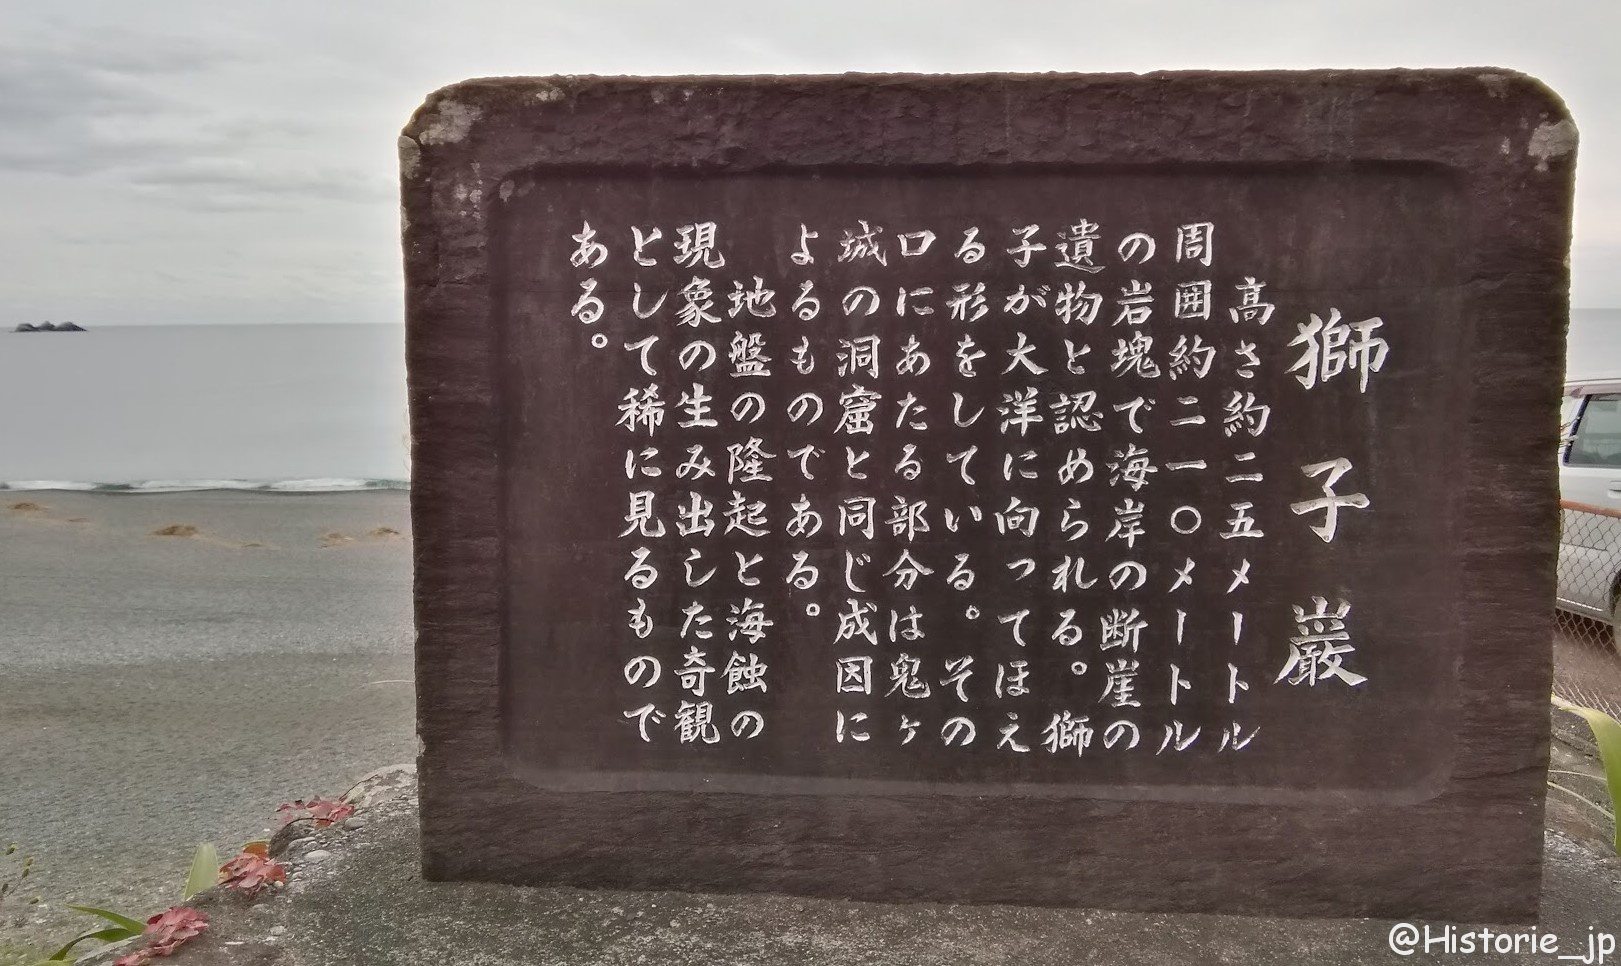 獅子巖
高さ約二五メートル
周囲約二一〇メートル
の岩塊で海岸の断崖の
遺物と認められる。獅
子が大洋に向ってほえ
る形をしている。その
口にあたる部分は鬼ヶ
城の洞窟と同じ成因に
よるものである。
地盤の隆起と海蝕の
現象の生み出した奇観
として稀に見るもので
ある。
@Historie_jp